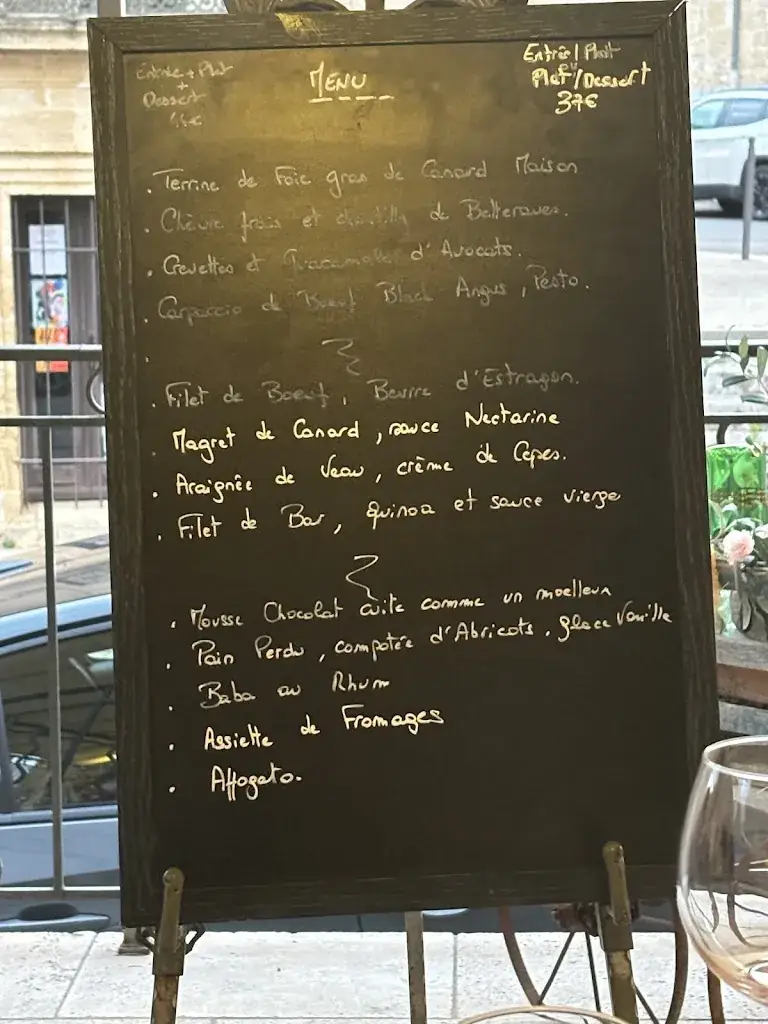 Entrée + Plat
+
Dessert
MENU
Entrée/Plat
ou
Plat/Dessert
37€
. Terrine de Foie gras de Canard Maison
. Chèvre frais et chantilly de Betteraves.
. Crevettes et Guacamole d'Avocats.
. Carpaccio de Boeuf Black Angus, Pesto.
.
. Filet de Boeuf, Beurre d'Estragon.
Magret de Canard, sauce Nectarine
. Araignée de Veau, crème de Cèpes.
. Filet de Bar, quinoa et sauce vierge
. Mousse Chocolat cuite comme un moelleux
. Pain Perdu, compotée d'Abricots, glace Vanille
. Baba au Rhum
. Assiette de Fromages
. Affogato.